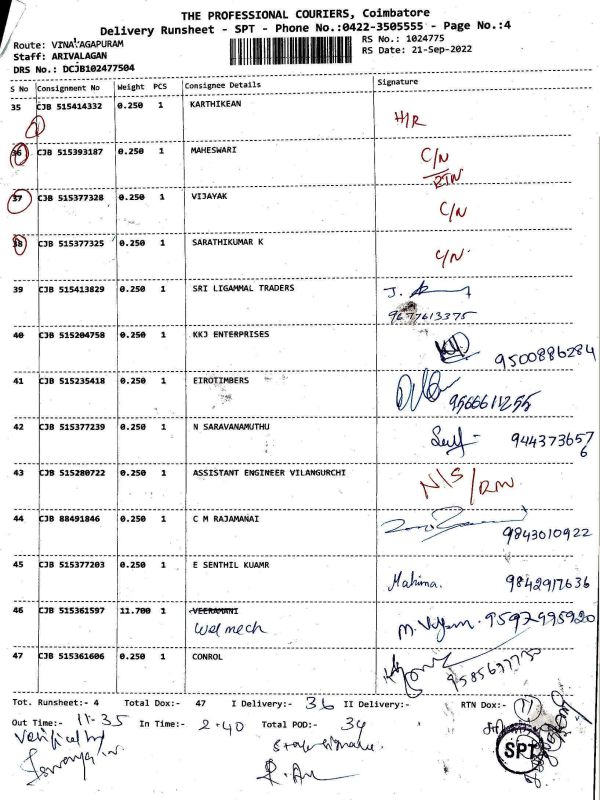 THE PROFESSIONAL COURIERS, Coimbatore
Delivery Runsheet - SPT - Phone No.:0422-3505555 - Page No.:4
Route: VINAYAGAPURAM
RS No.: 1024775
Staff: ARIVALAGAN
RS Date: 21-Sep-2022
DRS No.: DCJB102477504
S No Consignment No Weight PCS Consignee Details Signature
35 CJB 515414332 0.250 1 KARTHIKEAN H/R
36 CJB 515393187 0.250 1 MAHESWARI C/N
RTN
37 CJB 515377328 0.250 1 VIJAYAK C/N
38 CJB 515377325 0.250 1 SARATHIKUMAR K C/N
39 CJB 515413829 0.250 1 SRI LIGAMMAL TRADERS J.
9677613375
40 CJB 515204758 0.250 1 KKJ ENTERPRISES
9500886284
41 CJB 515235418 0.250 1 EIROTIMBERS
9566611255
42 CJB 515377239 0.250 1 N SARAVANAMUTHU 9443736576
43 CJB 515280722 0.250 1 ASSISTANT ENGINEER VILANGURCHI N/S
44 CJB 88491846 0.250 1 C M RAJAMANAI
9843010922
45 CJB 515377203 0.250 1 E SENTHIL KUAMR
Mahima. 9842917636
46 CJB 515361597 11.700 1 VEERAMANI
Welmech 9597995920
47 CJB 515361606 0.250 1 CONROL
Tot. Runsheet:- 4 Total Dox:- 47 I Delivery:- 36 II Delivery:- RTN Dox:- 11
Out Time:- 11.35 In Time:- 2.40 Total POD:- 34
Verified by
SPT